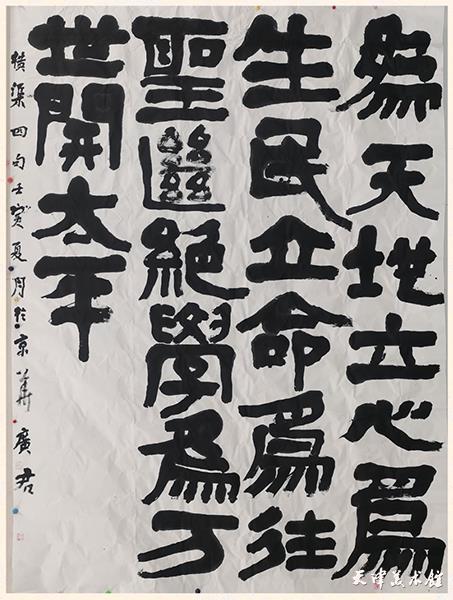 為天地立心為
生民立命為往
聖繼絕學為万
世開太平
橫渠四句壬寅夏月於京華廣君
天津美術館